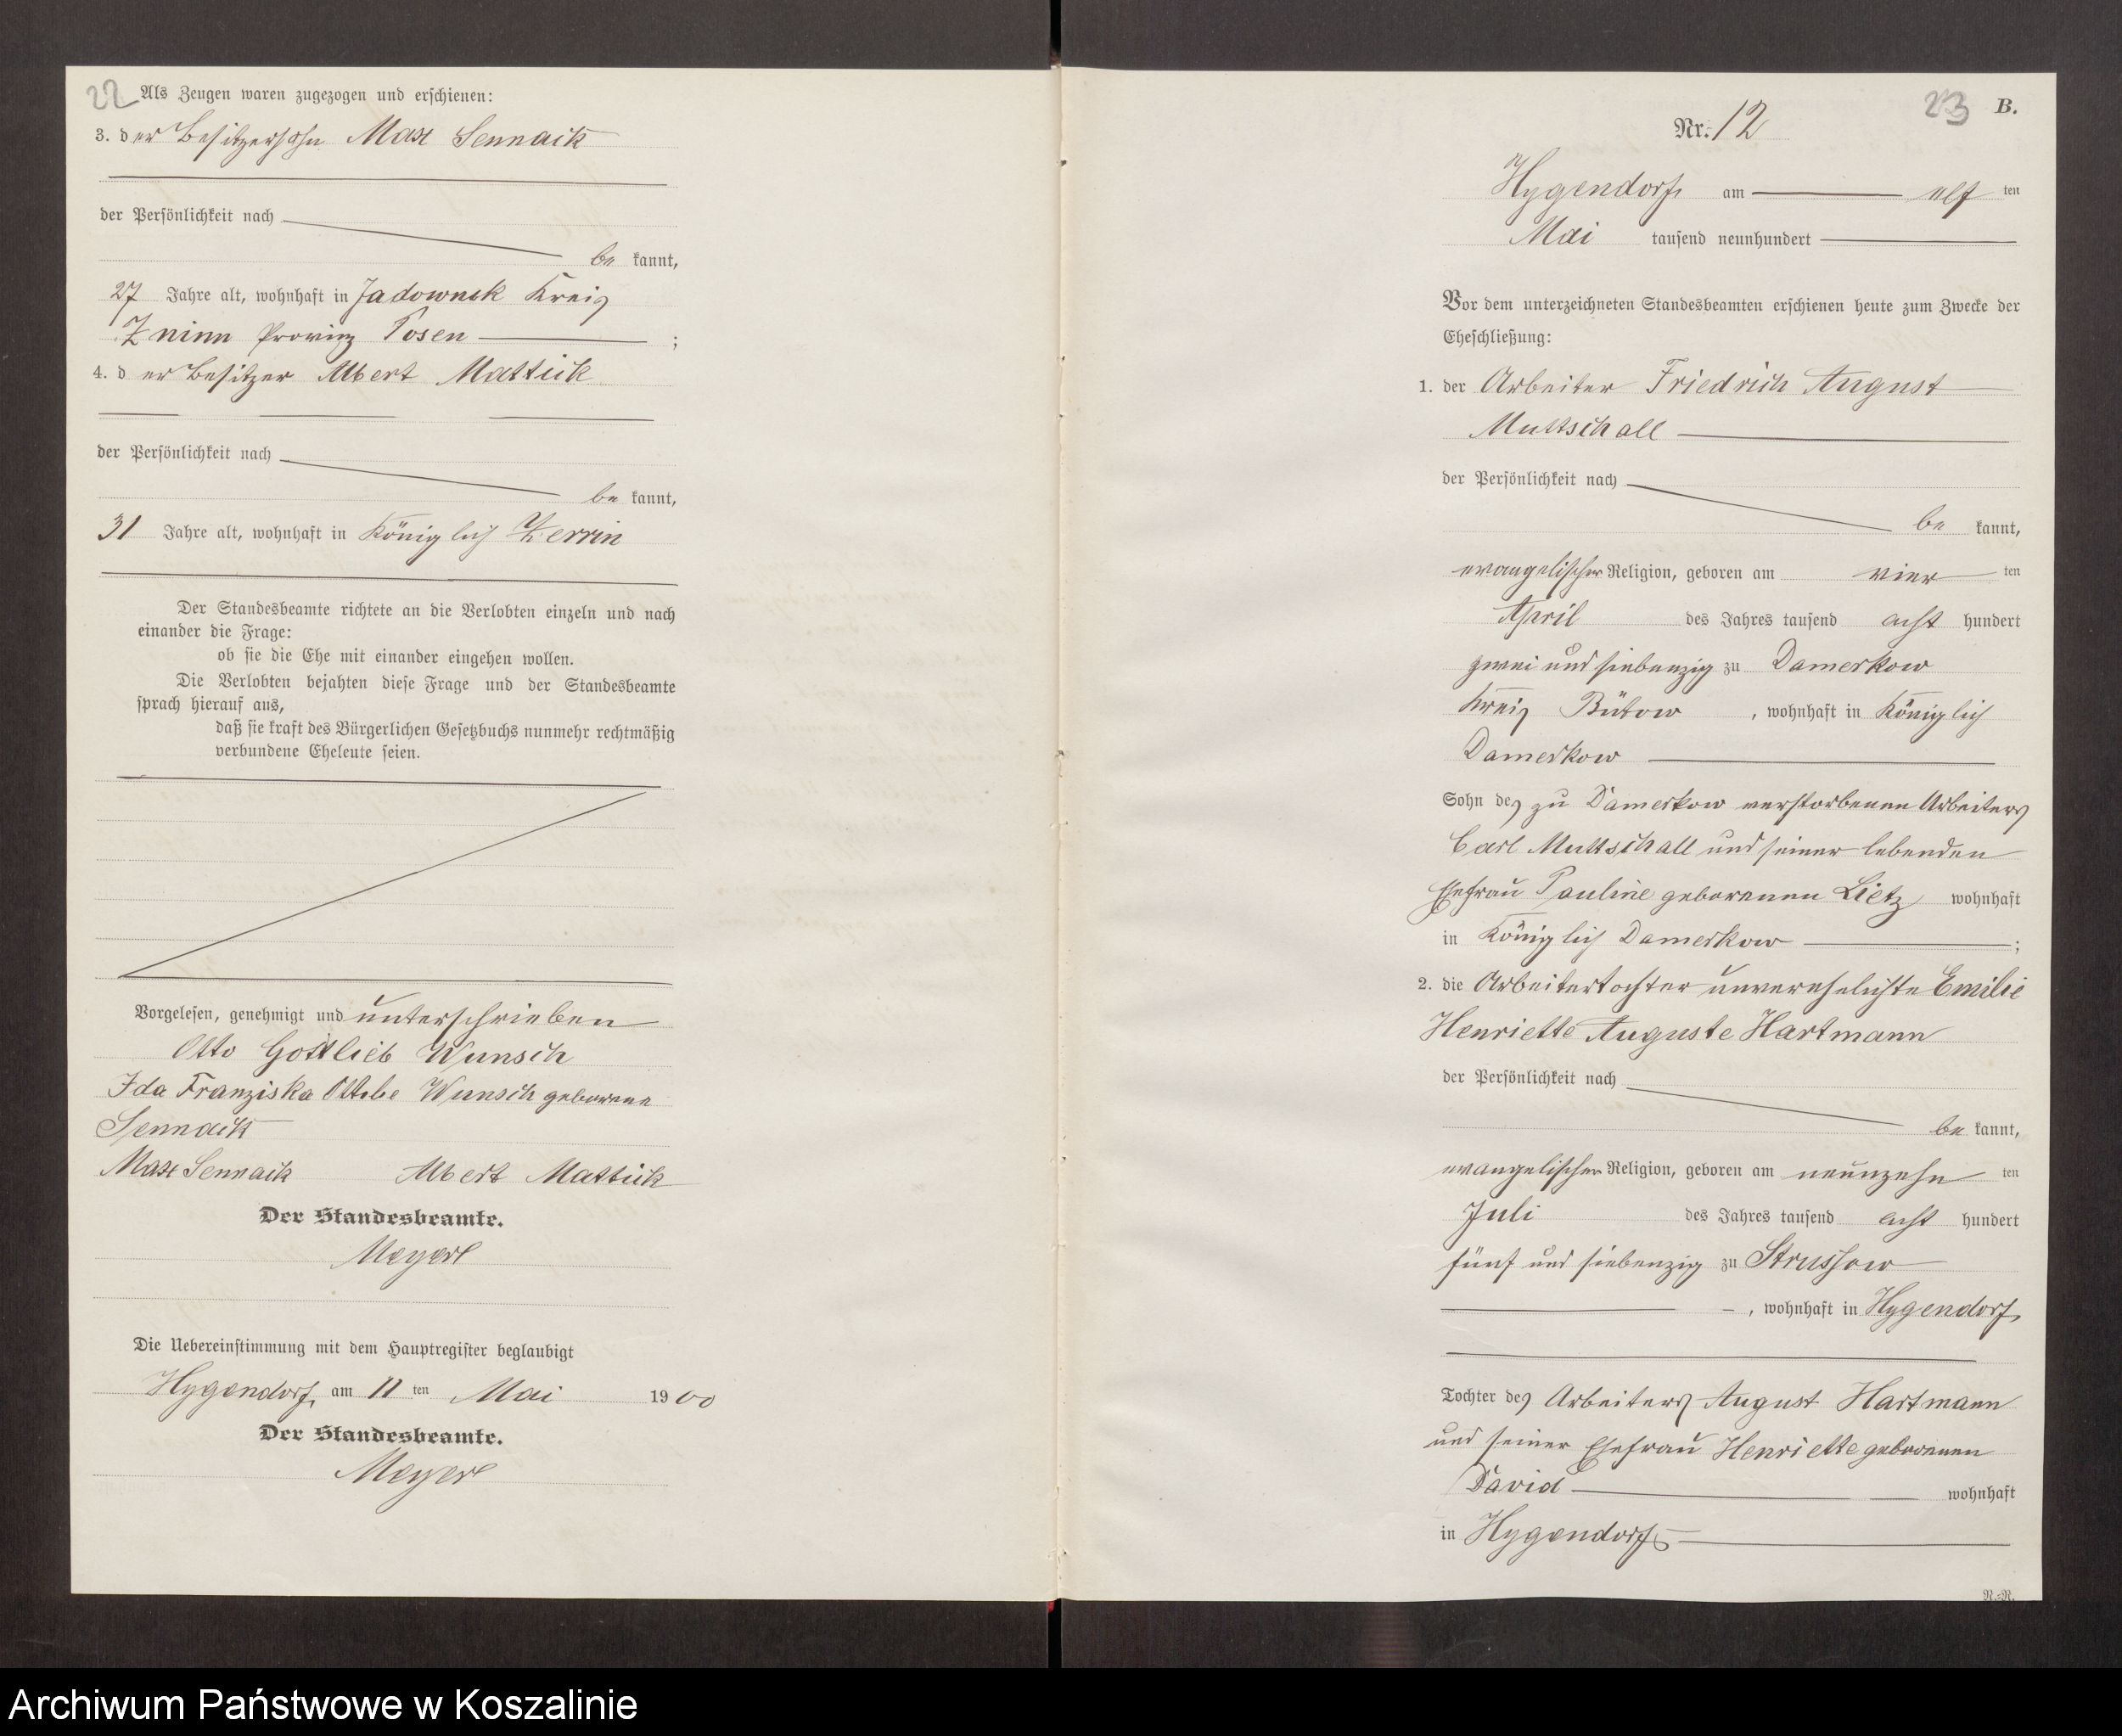 22
Als Zeugen waren zugezogen und erschienen:
3. der Besitzersohn Max Sennack
der Persönlichkeit nach
be kannt,
27 Jahre alt, wohnhaft in Jadownik Kreis
Znin Provinz Posen ;
4. der Besitzer Albert Mattick
der Persönlichkeit nach
be kannt,
31 Jahre alt, wohnhaft in Königlich Zerrin
Der Standesbeamte richtete an die Verlobten einzeln und nach
einander die Frage:
ob sie die Ehe mit einander eingehen wollen.
Die Verlobten bejahten diese Frage und der Standesbeamte
sprach hierauf aus,
daß sie kraft des Bürgerlichen Gesetzbuchs nunmehr rechtmäßig
verbundene Eheleute seien.
Vorgelesen, genehmigt und unterschrieben
Otto Gottlieb Wunsch
Ida Franziska Wunsch geborene
Sennack
Max Sennack Albert Mattick
Der Standesbeamte.
Die Uebereinstimmung mit dem Hauptregister beglaubigt
Hygendorf, am 11 ten Mai 1900
Der Standesbeamte.
23 B.
Nr. 12
Hygendorf, am elf ten
Mai tausend neunhundert
Vor dem unterzeichneten Standesbeamten erschienen heute zum Zwecke der
Eheschließung:
1. der Arbeiter Friedrich August
Muttschall
der Persönlichkeit nach
be kannt,
evangelischer Religion, geboren am vier ten
April des Jahres tausend acht hundert
zwei und siebenzig zu Damerkow
Kreis Bütow , wohnhaft in Königlich
Damerkow
Sohn des zu Damerkow verstorbenen Arbeiters
Carl Muttschall und seiner lebenden
Ehefrau Pauline geborenen Lietz wohnhaft
in Königlich Damerkow ;
2. die Arbeitertochter unverehelichte Emilie
Henriette Auguste Hartmann
der Persönlichkeit nach
be kannt,
evangelischer Religion, geboren am neunzehn ten
Juli des Jahres tausend acht hundert
fünf und siebenzig zu Strussow
, wohnhaft in Hygendorf,
Tochter des Arbeiters August Hartmann
und seiner Ehefrau Henriette geborenen
David wohnhaft
in Hygendorf
R.-R.
Archiwum Państwowe w Koszalinie